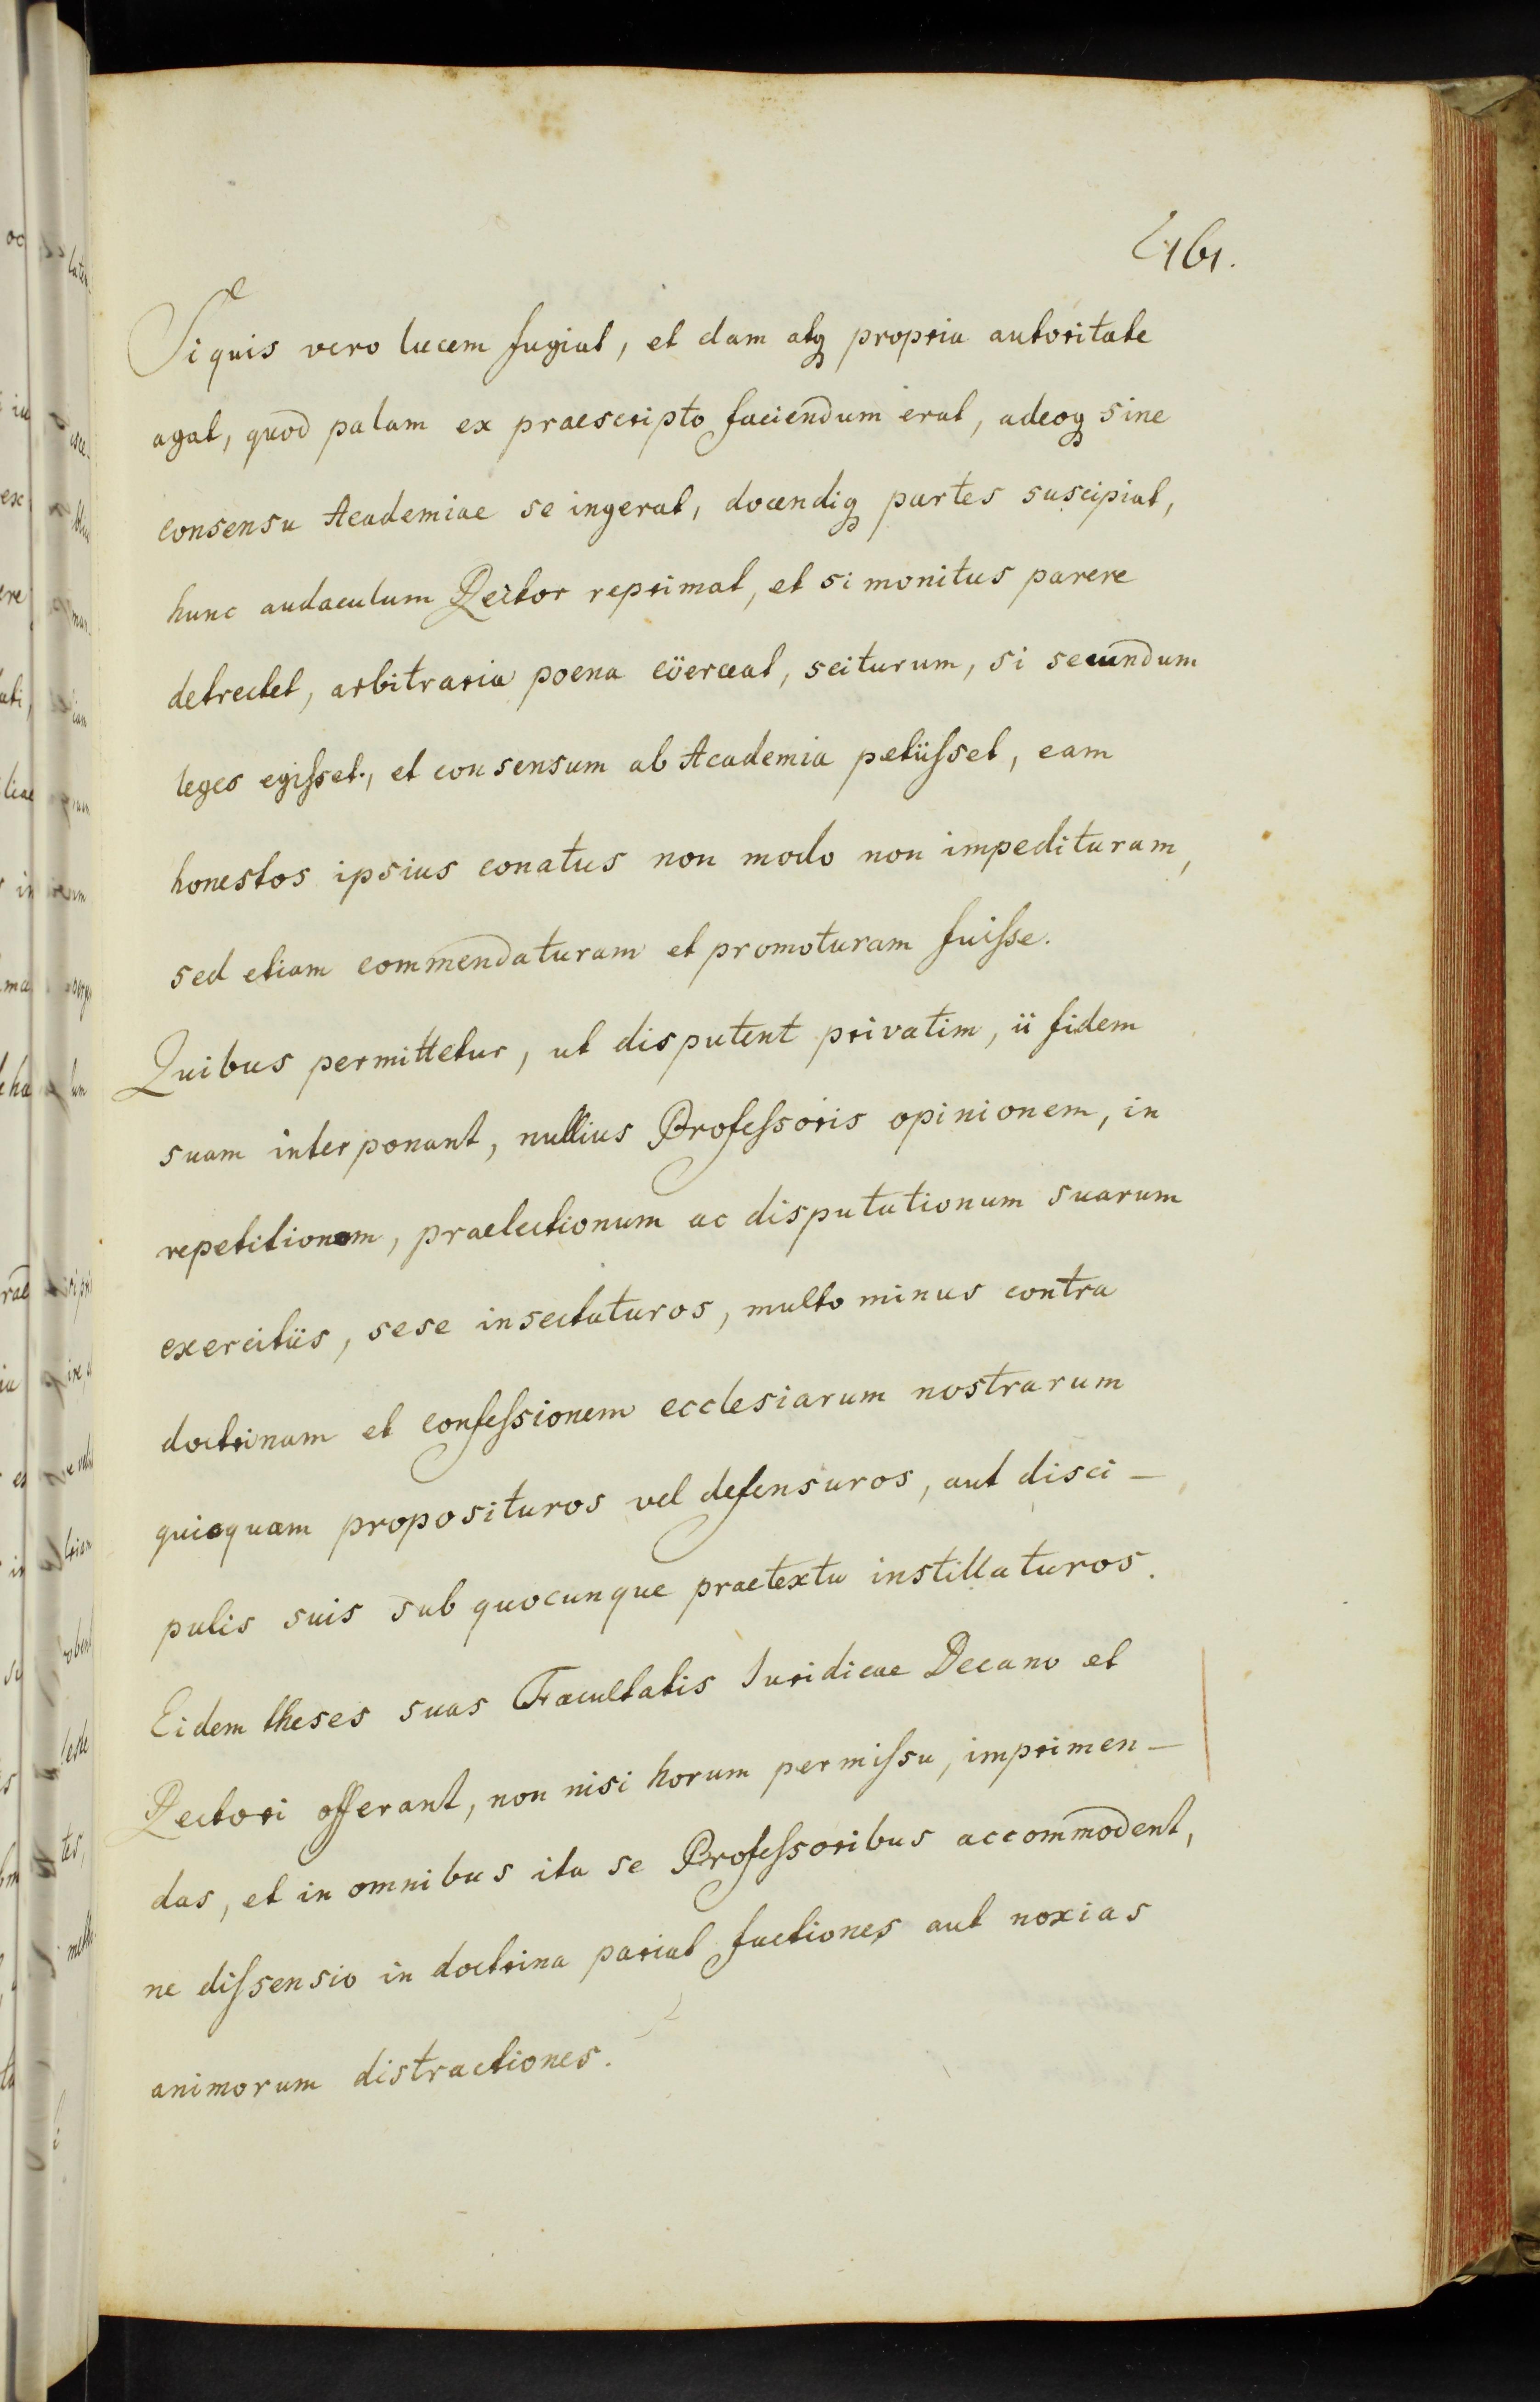 161.
Si quis vero lucem fugiat, et clam atq propria autoritate
agat, quod palam ex praescripto faciendum erat, adeoq sine
consensu Academiae se ingerat, docendiq partes suscipiat,
hunc audaculum Rector reprimat, et si monitus parere
detrectet, arbitraria poena cöerceat, sciturum, si secundum
leges egisset, et consensum ab Academia petiisset, eam
honestos ipsius conatus non modo non impedituram,
sed etiam commendaturam et promoturam fuisse.
Quibus permittetur, ut disputent privatim, ii fidem
suam interponant, nullius Professoris opinionem, in
repetitionem, praelectionum ac disputationum suarum
exercitiis, sese insectaturos, multo minus contra
doctrinam et confessionem ecclesiarum nostrarum
quicquam proposituros vel defensuros, aut disci-
pulis suis sub quocunque praetextu instillaturos.
Eidem theses suas Facultatis Iuridicae Decano et
Rectori offerant, non nisi horum permissu, imprimen-
das, et in omnibus ita se Professoribus accommodent,
ne dissensio in doctrina pariat factiones aut noxias
animorum distractiones.